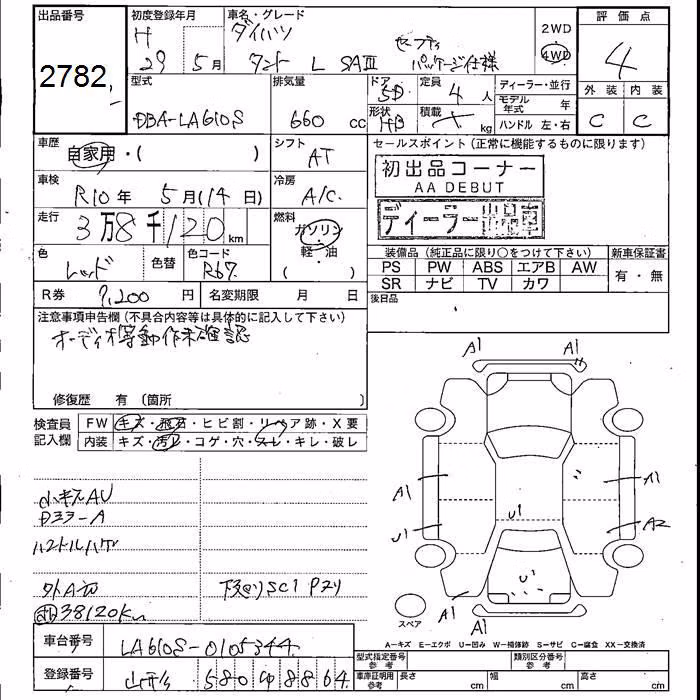 出品番号
2782
初度登録年月
H 29 5月
車名・グレード
ダイハツ
タント L SAⅢ セーフティパッケージ仕様
2WD
4WD
評価点
4
外装 内装
C C
型式
DBA-LA610S
排気量
660 cc
ドア
5D
形状
HB
定員
4 人
積載
kg
ディーラー・並行
モデル年式 年
ハンドル 左・右
車歴
自家用・( )
シフト
AT
セールスポイント(正常に機能するものに限ります)
初出品コーナー
AA DEBUT
ディーラー出品車
車検
R10年 5月(14日)
冷房
A/C
走行
3万8千120 km
燃料
ガソリン
(軽・油)
色
レッド
色替
色コード
R67
装備品(純正品に限り○をつけて下さい)
新車保証書
PS PW ABS エアB AW
SR ナビ TV カワ
有・無
R券 9,200円
名変期限 月 日
後日品
注意事項申告欄(不具合内容等は具体的に記入して下さい)
オーディオ等動作未確認
修復歴 有(箇所 )
検査員記入欄
FW キズ・飛石・ヒビ割・リペア跡・X要
内装 キズ・汚レ・コゲ・穴・スレ・キレ・破レ
小キズAU
ハンドルハゲ
38120Km
A1 A1
A1 A1
U1 U1 A2
U1
A1 A1
スペア
A-キズ E-エクボ U-凹み W-補修跡 S-サビ C-腐食 XX-交換済
車台番号
LA610S-0105344
型式指定番号 参考
類別区分番号 参考
登録番号
580 8864
車庫証明用 参考
長さ cm 幅 cm 高さ cm